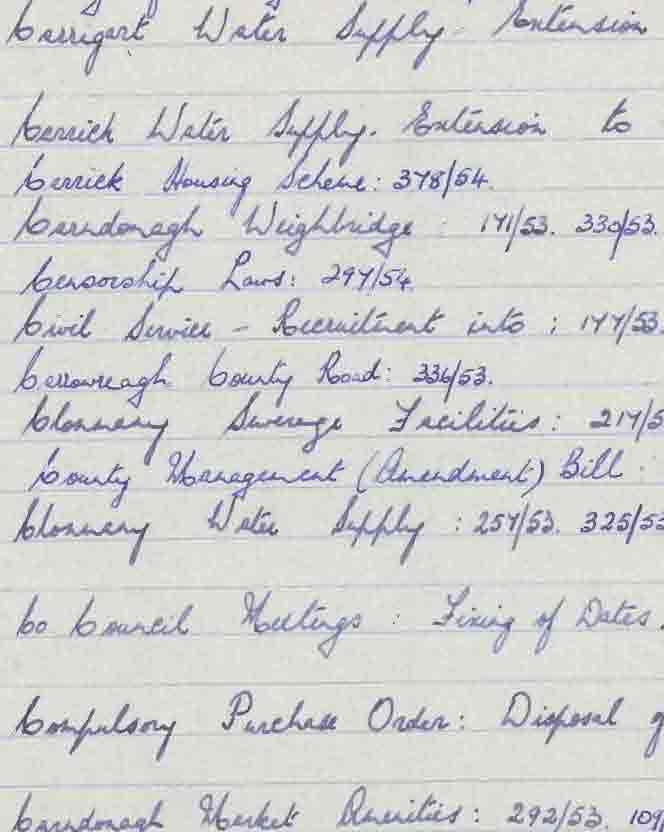 Carrigart Water Supply Extension
Carrick Water Supply. Extension to
Carrick Housing Scheme: 378/54.
Carndonagh Weighbridge : 171/53. 330/53.
Censorship Laws: 297/54.
Civil Service - Recruitment into : 177/53
Carrowreagh County Road: 336/53.
Clonmany Sewerage Facilities: 217/5
County Management (Amendment) Bill :
Clonmany Water Supply : 257/53. 325/53
Co Council Meetings : Fixing of Dates.
Compulsory Purchase Order: Disposal
Carndonagh Market Amenities: 292/53. 109/